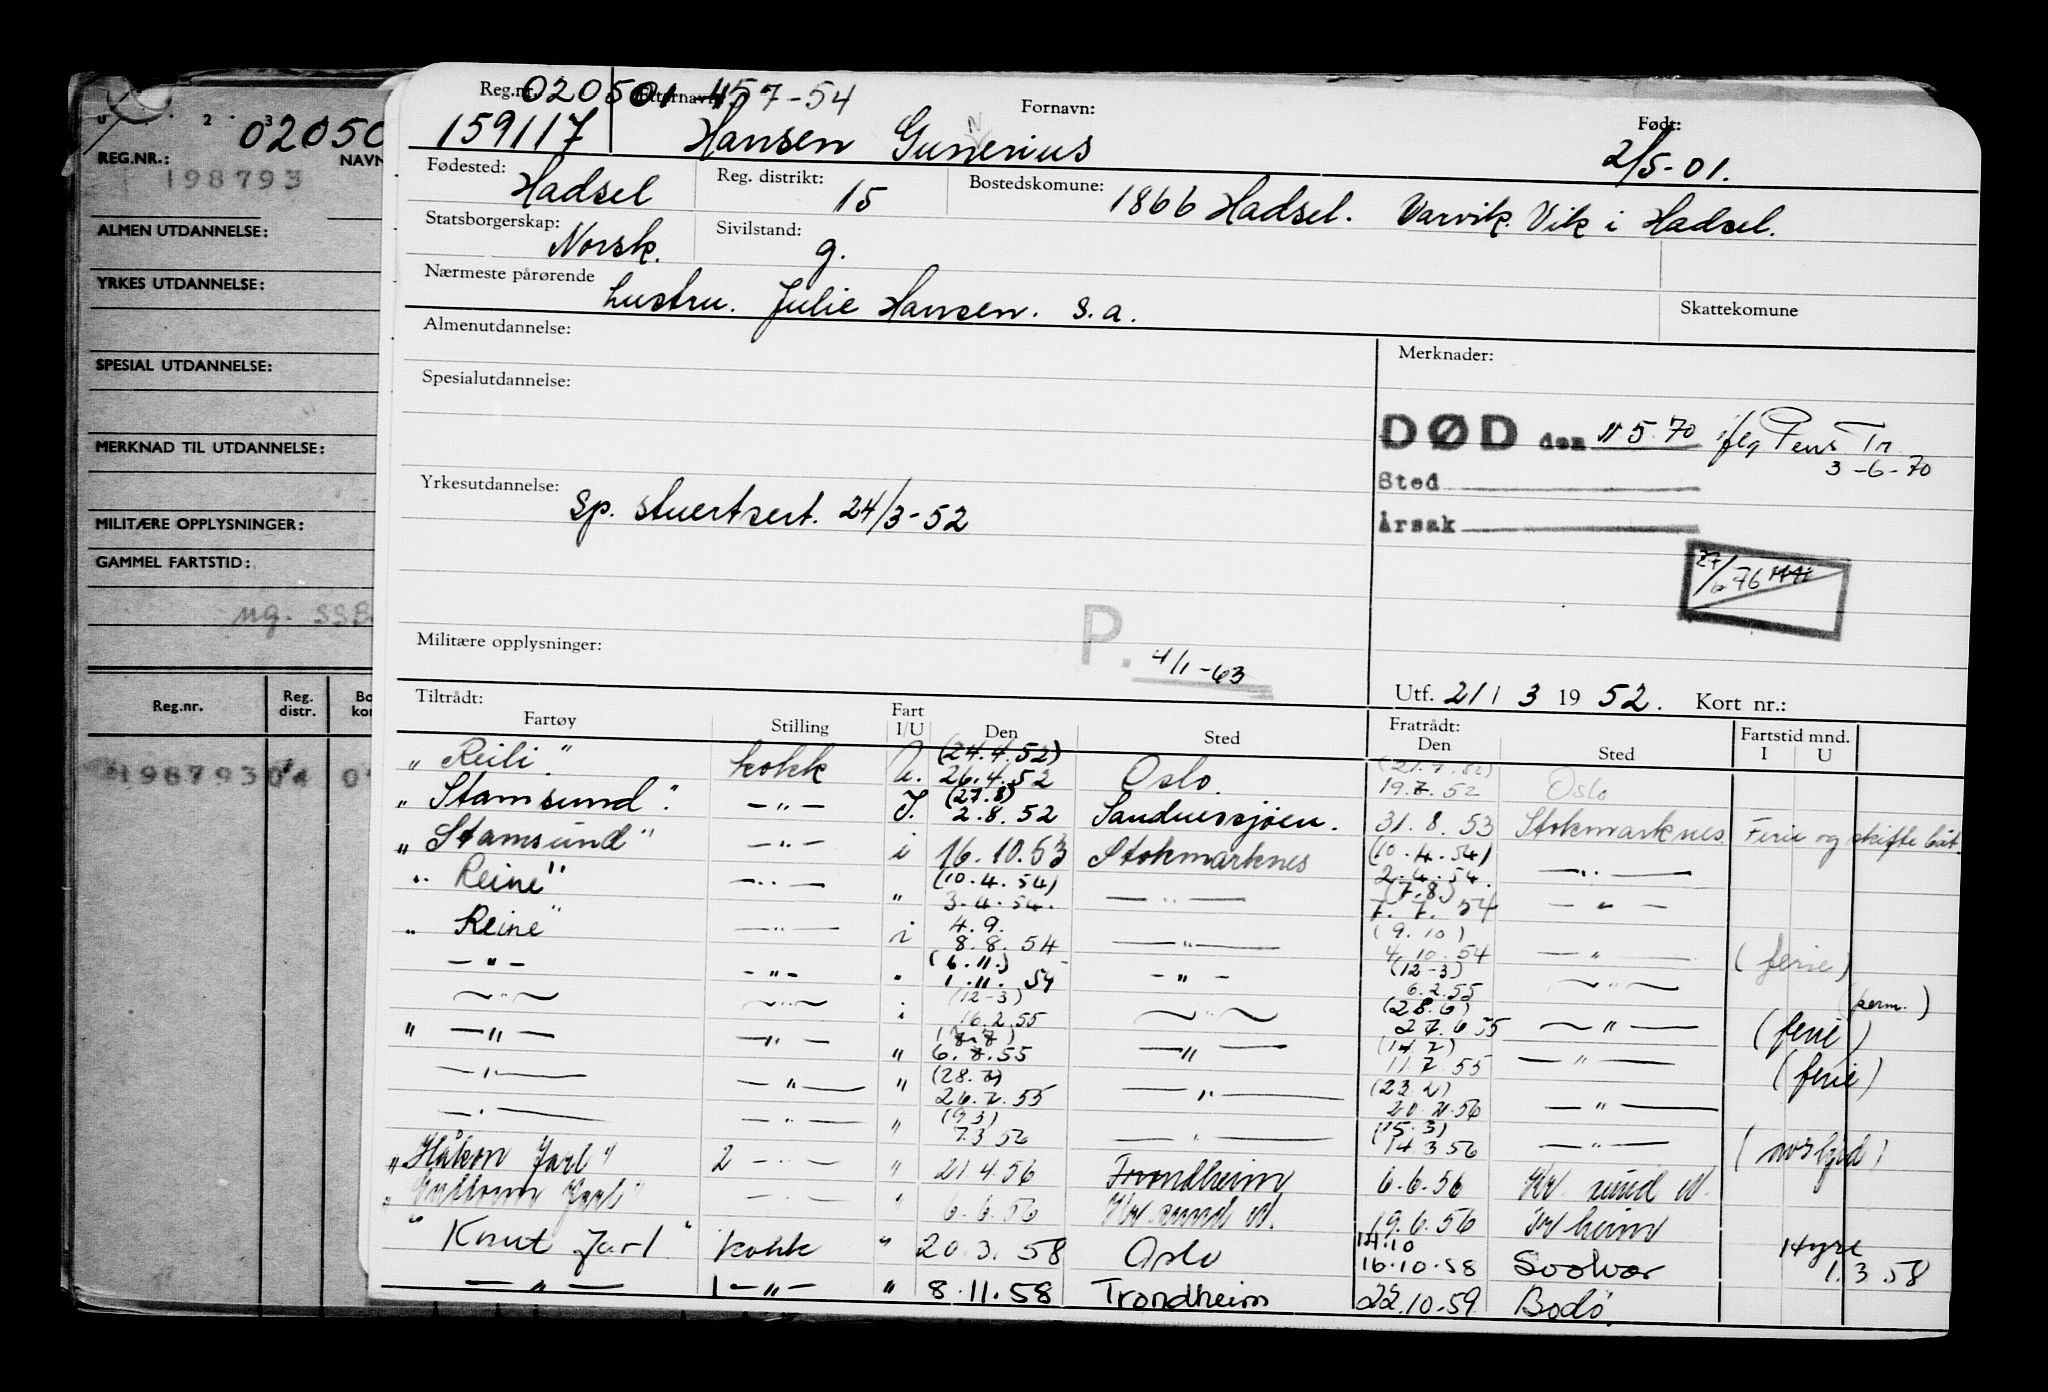 Reg.nr. 020501 Etternavn: 457-54 Fornavn: Født:
159117 Hansen Gunerius 2/5-01.
Fødested: Hadsel Reg. distrikt: 15 Bostedskomune: 1866 Hadsel. Varvik. Vik i Hadsel.
Statsborgerskap: Norsk. Sivilstand: g.
Nærmeste pårørende hustru. Julie Hansen. s.a. Skattekomune
Almenutdannelse: Merknader:
Spesialutdannelse:
DØD den 11 5 70 iflg Pens Tr
3-6-70
Sted
Årsak
Yrkesutdannelse: Sp. stuertsert. 24/3-52
27/6 76
Militære opplysninger: P. 4/1-63
Utf. 21/3 1952. Kort nr.:
Tiltrådt: Fratrådt:
Fartøy Stilling Fart I/U Den Sted Den Sted Fartstid mnd. I U
(24.4.52)
"Reili". kokk U. 26.4.52 Oslo. 19.7.52 Oslo
(27.8)
"Stamsund". —"— I. 2.8.52 Sandnessjøen. 31.8.53 Stokmarknes. Ferie og skifte båt.
"Stamsund" —"— i 16.10.53 Stokmarknes (10.4.54) 2.4.54. —"—
"Reine" —"— " (10.4.54) 3.4.54. —"— (7.8) 7.7.54 —"—
"Reine" —"— i 4.9. 8.8.54 —"— (9.10) 4.10.54 —"— (ferie)
—"— —"— " (6.11.) 1.11.54 —"— (12-3) 6.2.55 —"— (perm.)
—"— —"— i (12-3) 16.2.55 —"— (28.6) 27.6.55 —"— (ferie)
" —"— —"— " 6.7.55 —"— (14.7) 11.7.55 —"— (ferie)
—"— —"— " (28.7) 26.7.55 —"— (23.2) 20.2.56 —"—
—"— —"— " (9.3) 7.3.56 —"— (15.3) 14.3.56 —"—
"Håkon Jarl" 2 —"— " 21.4.56 Trondheim 6.6.56 Kr. sund N.
Jarl" —"— " 6.6.56 Kr. sund N. 19.6.56 Tr heim
"Knut Jarl" kokk " 20.3.58 Oslo 14.10 16.10.58 Svolvær Hyre 1.3.58
—"— 1—"— " 8.11.58 Trondheim 22.10.59 Bodø.
02050
REG.NR.: NAVN
198793
ALMEN UTDANNELSE:
YRKES UTDANNELSE:
SPESIAL UTDANNELSE:
MERKNAD TIL UTDANNELSE:
MILITÆRE OPPLYSNINGER:
GAMMEL FARTSTID:
Reg.nr. Reg. distr. Bo kom
198793